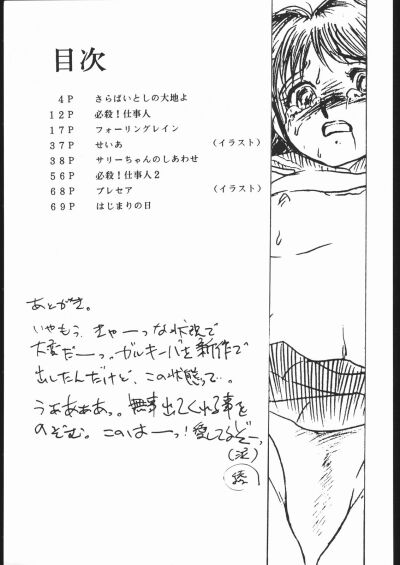 目次
4P きらばいとしの大地よ
12P 必殺！仕事人
17P フォーリングレイン
37P せいあ （イラスト）
38P サリーちゃんのしあわせ
56P 必殺！仕事人2
68P プレセア （イラスト）
69P はじまりの日
あとがき。
いやもう、きゃーっな状況で
大変だーっ。ガルキーバを新作で
出したんだけど、この状態って…。
うぁあああっ。無事出てくれる事を
のぞむ。このはーっ！愛してるぞーっ
（泣）